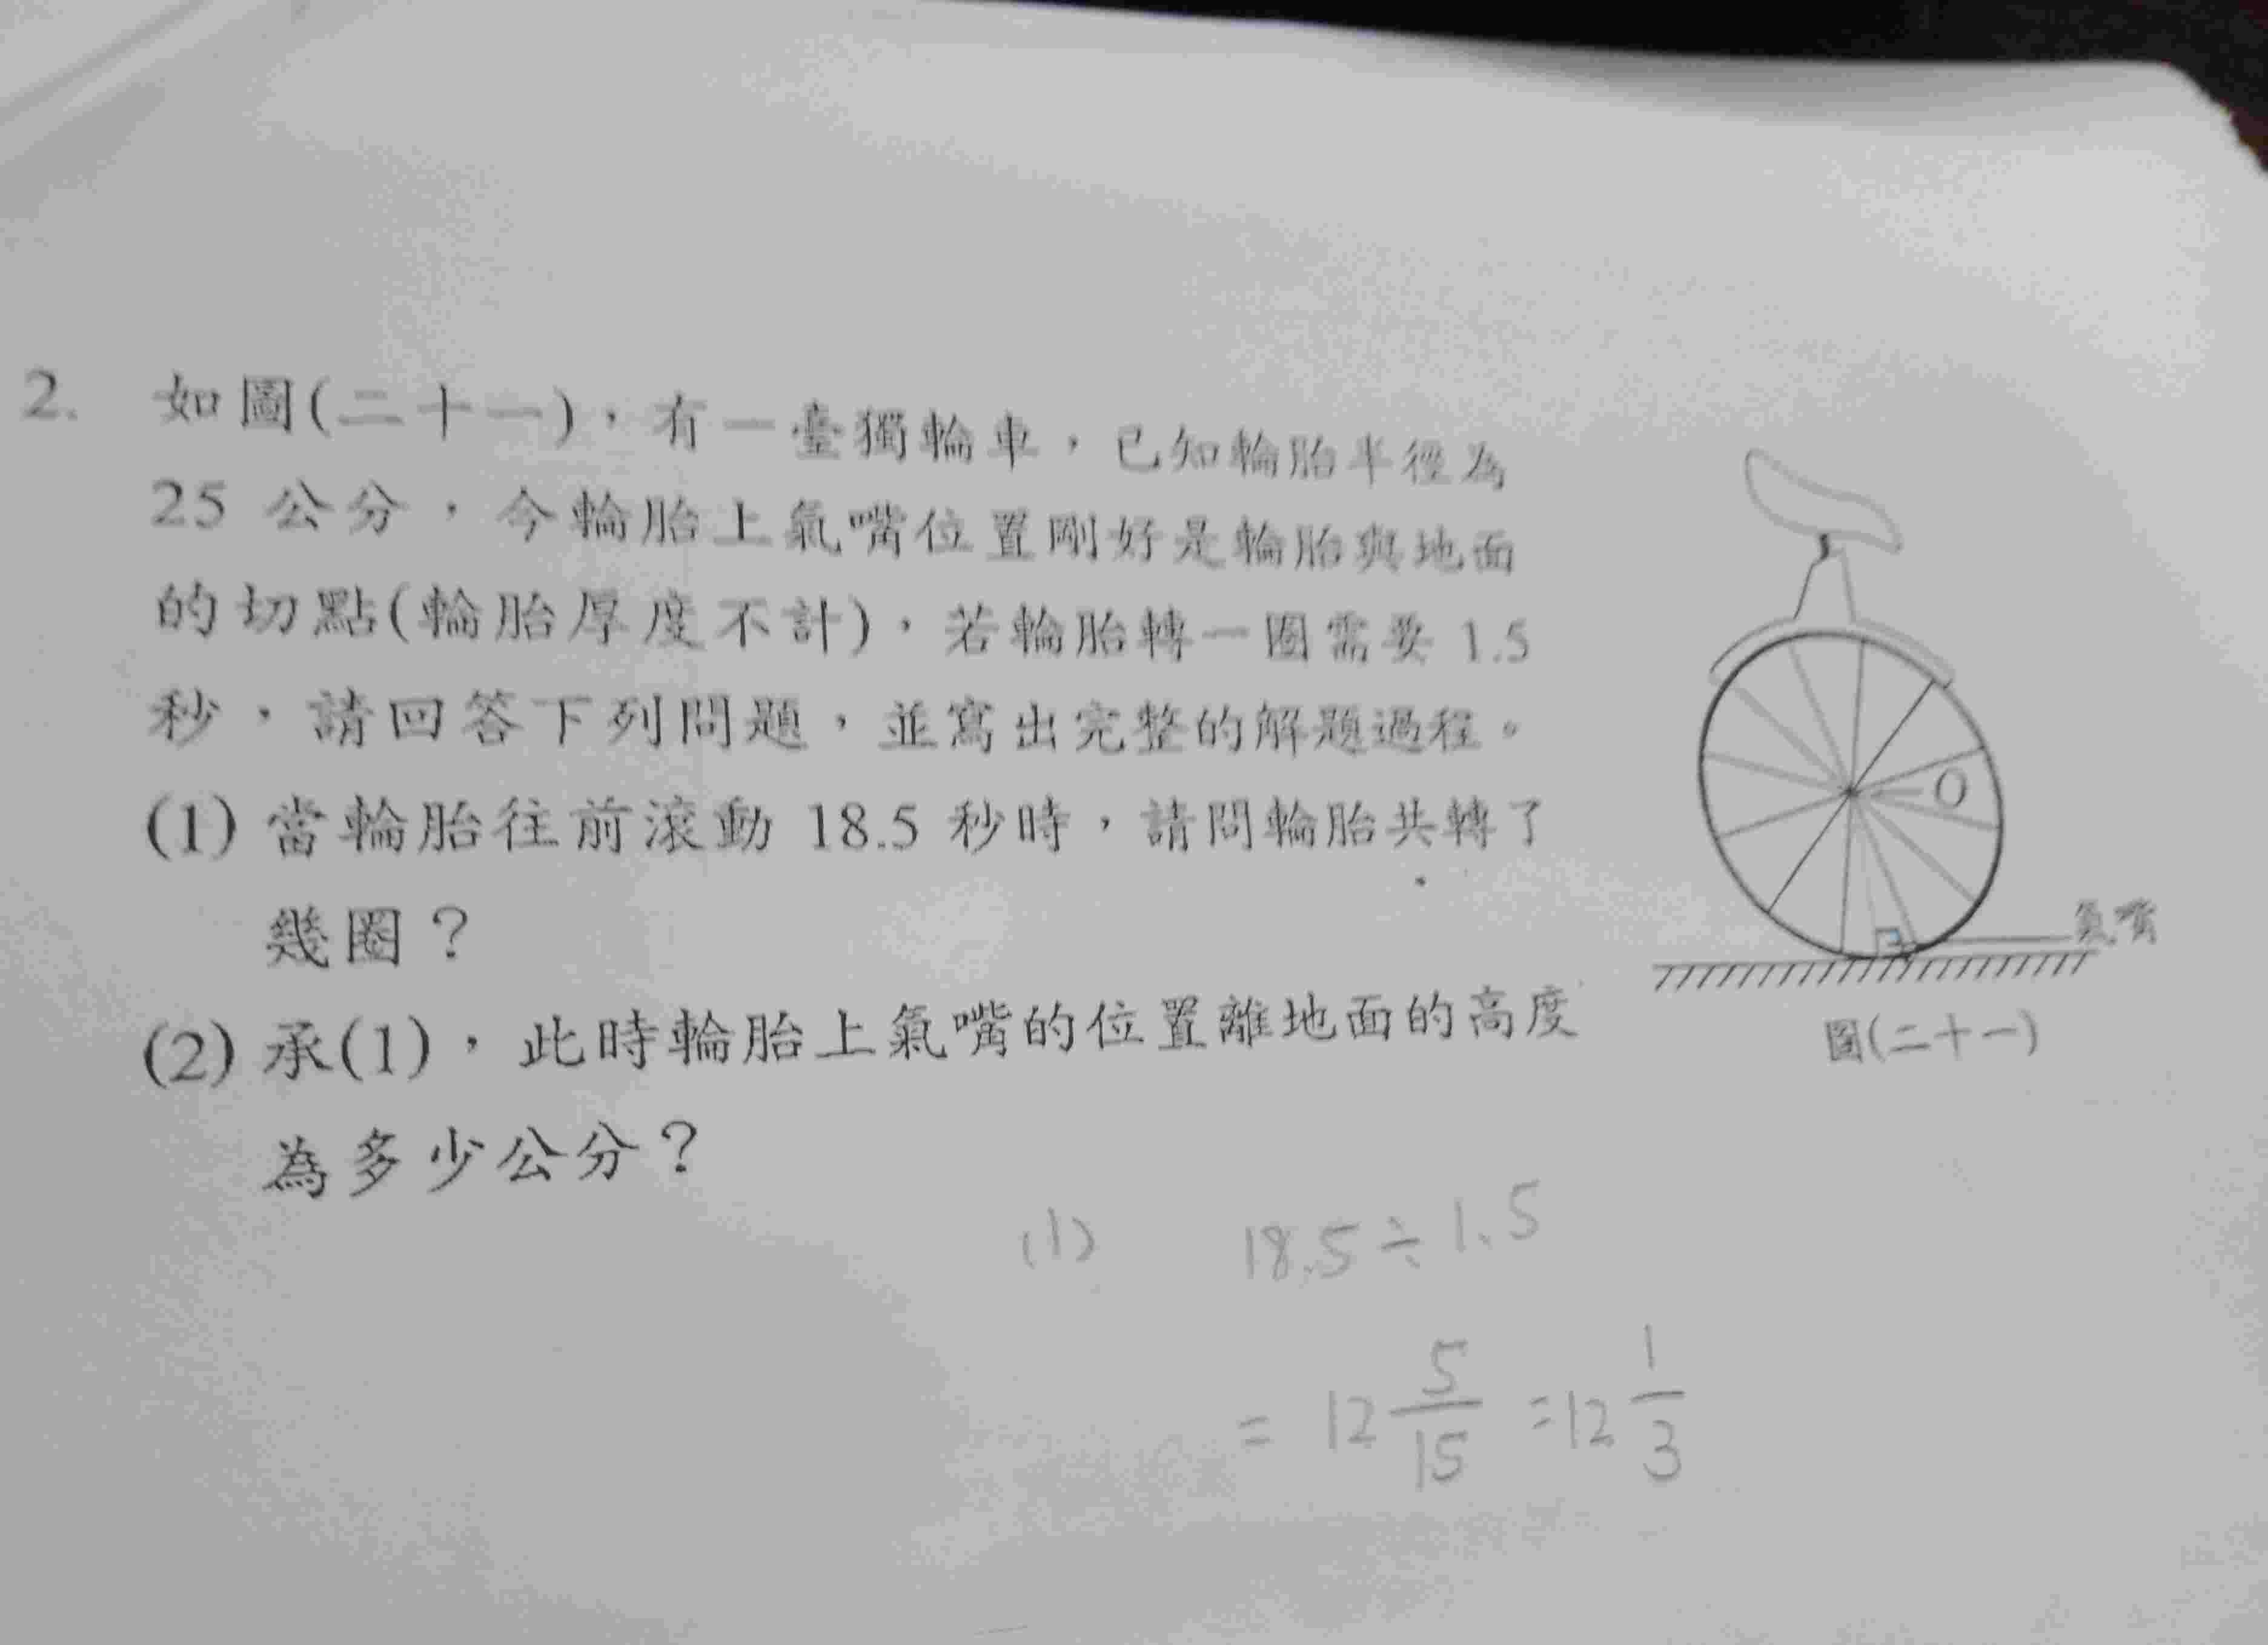 2. 如圖(二十一)，有一臺獨輪車，已知輪胎半徑為
25 公分，今輪胎上氣嘴位置剛好是輪胎與地面
的切點(輪胎厚度不計)，若輪胎轉一圈需要 1.5
秒，請回答下列問題，並寫出完整的解題過程。
(1) 當輪胎往前滾動 18.5 秒時，請問輪胎共轉了
幾圈？
(2) 承(1)，此時輪胎上氣嘴的位置離地面的高度
為多少公分？
O
氣嘴
圖(二十一)
(1) 18.5 ÷ 1.5
= 12 5/15 = 12 1/3